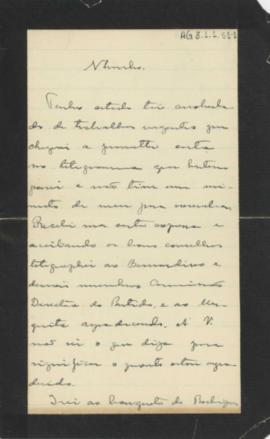 AG 8.1.1. 65-1
Tenho estado tão assoberba-
do de trabalhos urgentes que
cheguei a prometter carta
no telegramma que hontem
passei e não tive um mi-
nuto de meu para
Recebi sua carta
e acceitando os bons conselhos
telegraphei ao Bernardino e
demais membros Commissão
Directora do Partido, e ao Mes-
quita agradecendo. A V.
não sei o que diga para
significar o quanto estou agra-
decido.
Irei ao banquete do Rodrigues